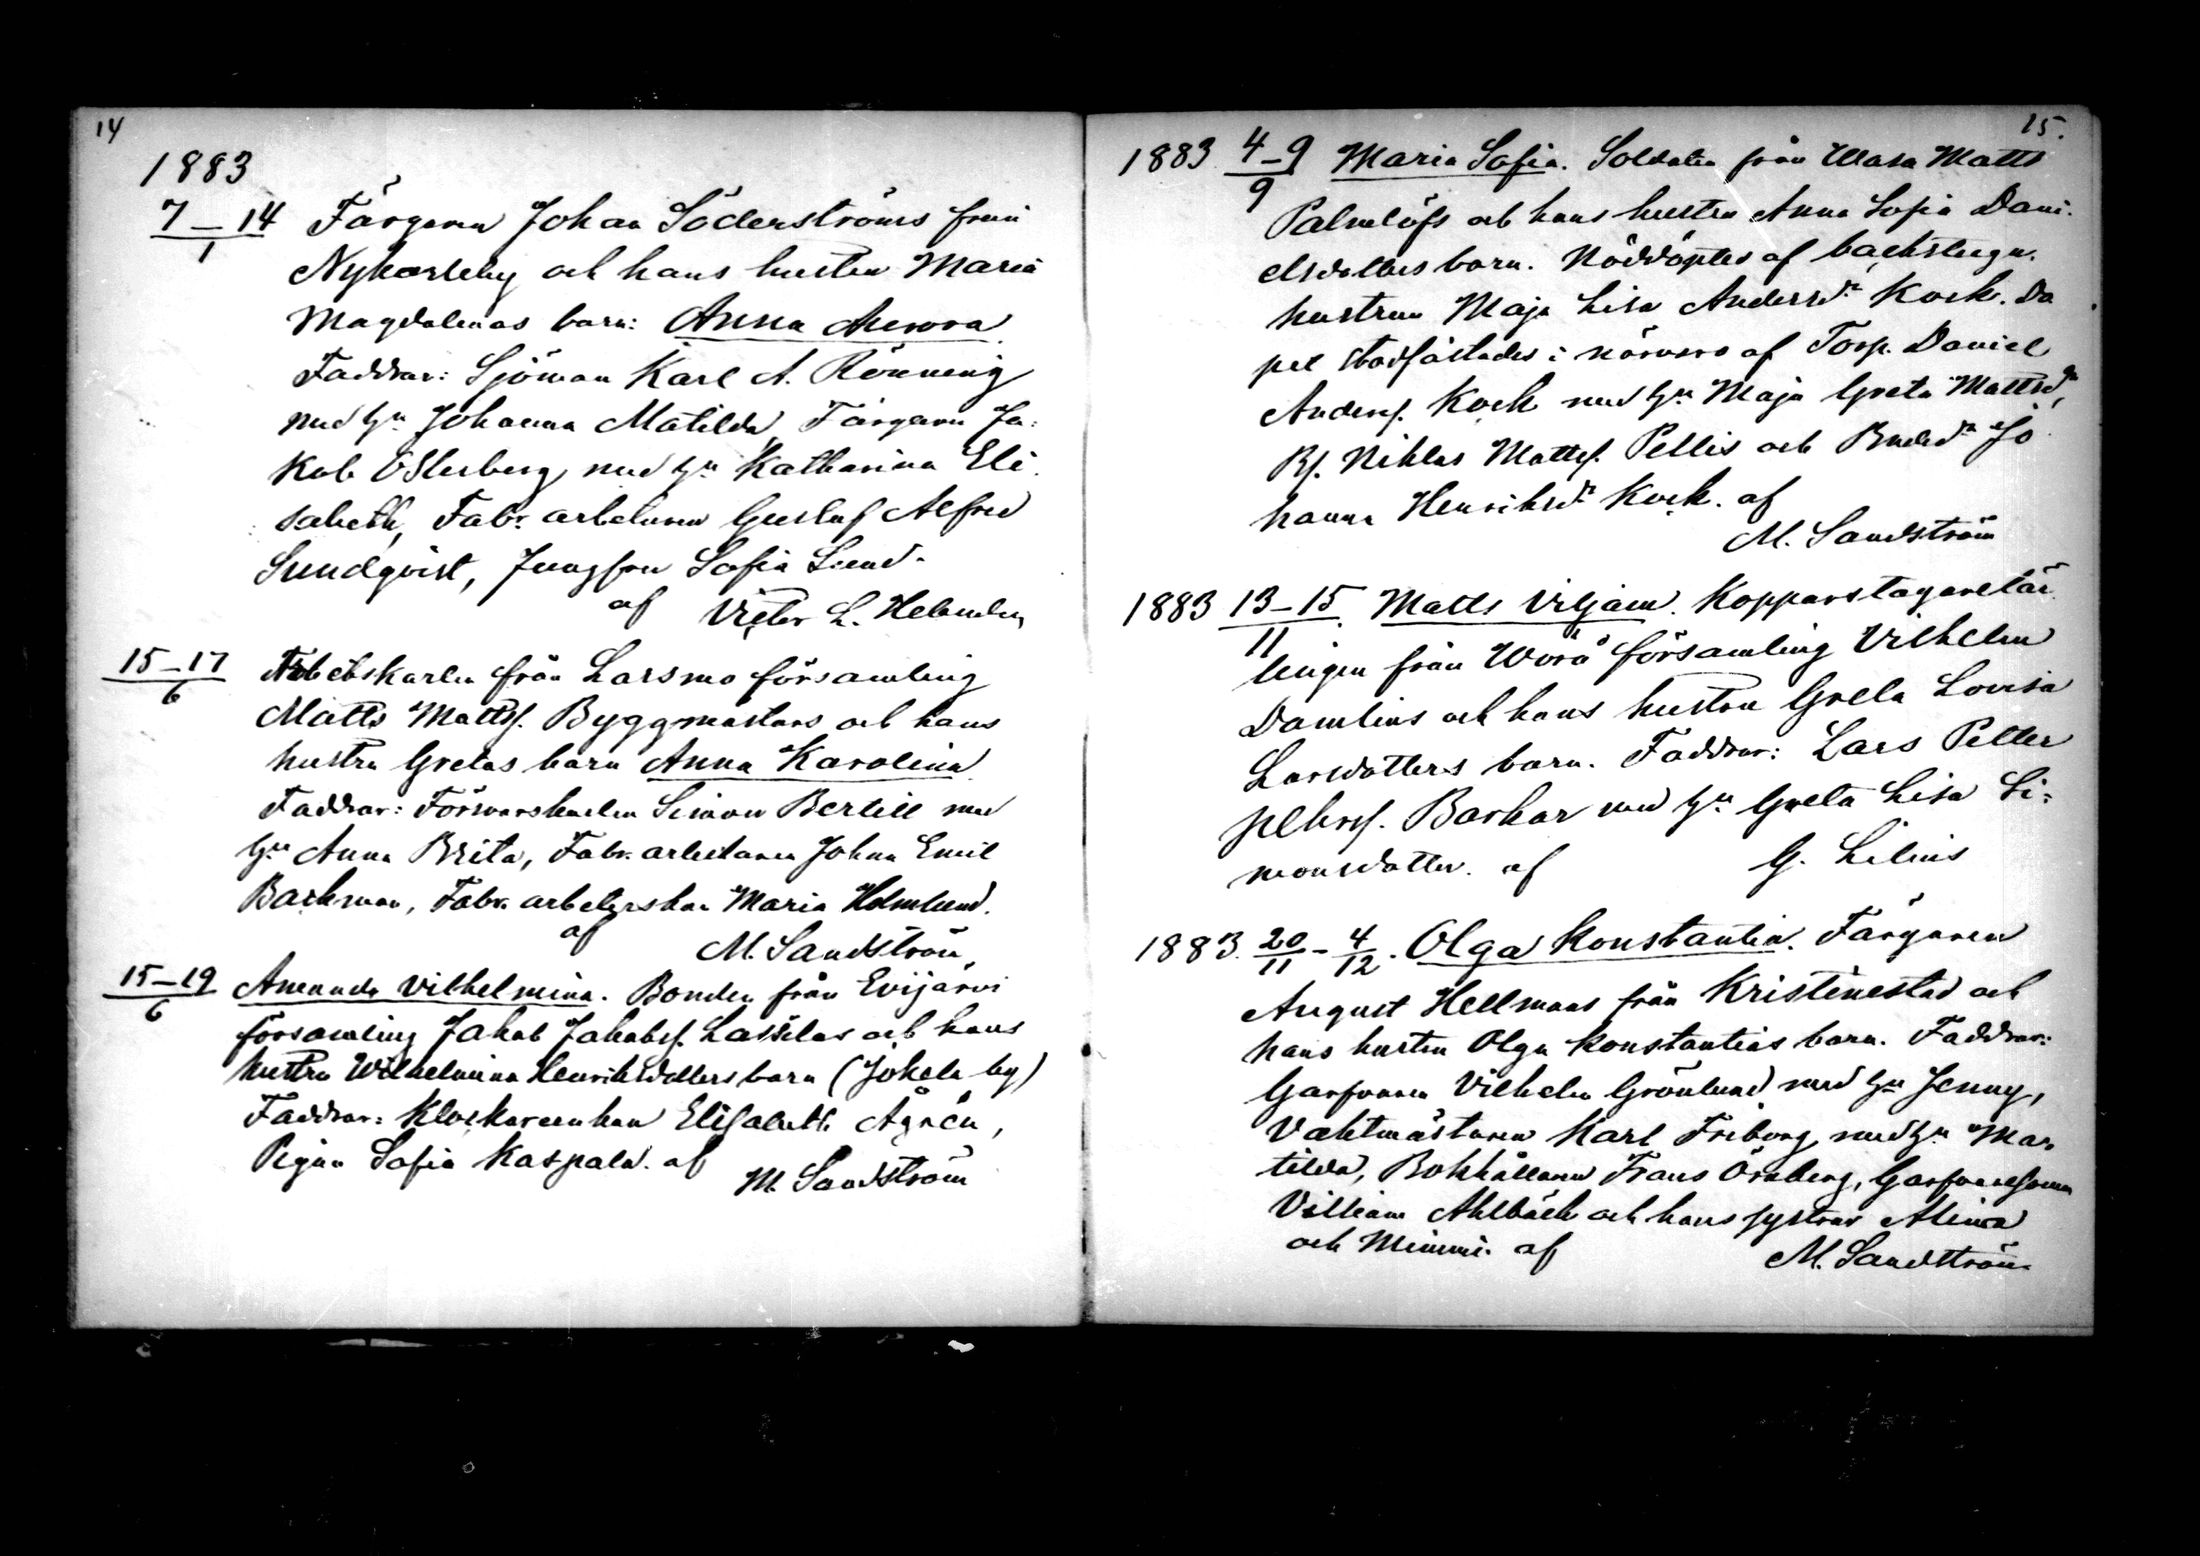 14
1883
7–14/1 Färgaren Johan Söderströms från
Nykarleby och hans hustru Maria
Magdalenas barn: Anna Aurora
Faddrar: Sjöman Karl A. Rönning
med hu Johanna Matilda, Färgaren Ja-
kob Österberg med hu Katharina Eli-
sabeth, Fabr. arbetaren Gustaf Alfred
Sundqvist, Jungfru Sofia Lund.
af Victor L. Helander
15–17/6 Arbetskarlen från Larsmo församling
Matts Mattss. Byggmästars och hans
hustru Gretas barn Anna Karolina
Faddrar: Försvarskarlen Simon Bertill med
hu Anna Brita, Fabr. arbetaren Johan Emil
Backman, Fabr. arbeterskan Maria Holmlund.
af M. Sandström
15–19/6 Amanda Vilhelmina. Bonden från Evijärvi
församling Jakob Jakobss. Lassilas och hans
hustru Wilhelmina Henriksdotters barn (Jokela by)
Faddrar: Klockareenkan Elisabeth Ågrén,
Pigan Sofia Kaspala. af
M. Sandström
15.
1883 4–9/9 Maria Sofia. Soldaten från Wasa Matts
Palmlöfs och hans hustru Anna Sofia Dani-
elsdotters barn. Nöddöptes af backstugu-
hustrun Maja Lisa Andersdr Kock. Do
pet stadfästades i närvaro af Torp. Daniel
Anderss. Kock med hu Maja Greta Mattsdr,
Bs. Niklas Mattss. Pellis och Bmded Jo
hanna Henriksdr Kock. af
M. Sandström
1883 13–15/11. Matts Viljam. Kopparslagarelär
lingen från Wörå församling Vilhelm
Damlins och hans hustru Greta Lovisa
Larsdotters barn. Faddrar: Lars Petter
Petterss. Backar med hu Greta Lisa Si-
monsdotter. af G. Lilius
1883. 20/11 – 4/12. Olga Konstantia. Färgaren
August Hellmans från Kristinestad och
hans hustru Olga Konstantias barn. Faddrar:
Garfvaren Vilhelm Grönlund med hu Jenny,
Vaktmästaren Karl Friborg med hu Ma-
tilda, Bokhållaren Frans Örnberg, Garfvaresonen
Villiam Ahlbäck och hans systrar Alina
och Mimmi. af M. Sandström